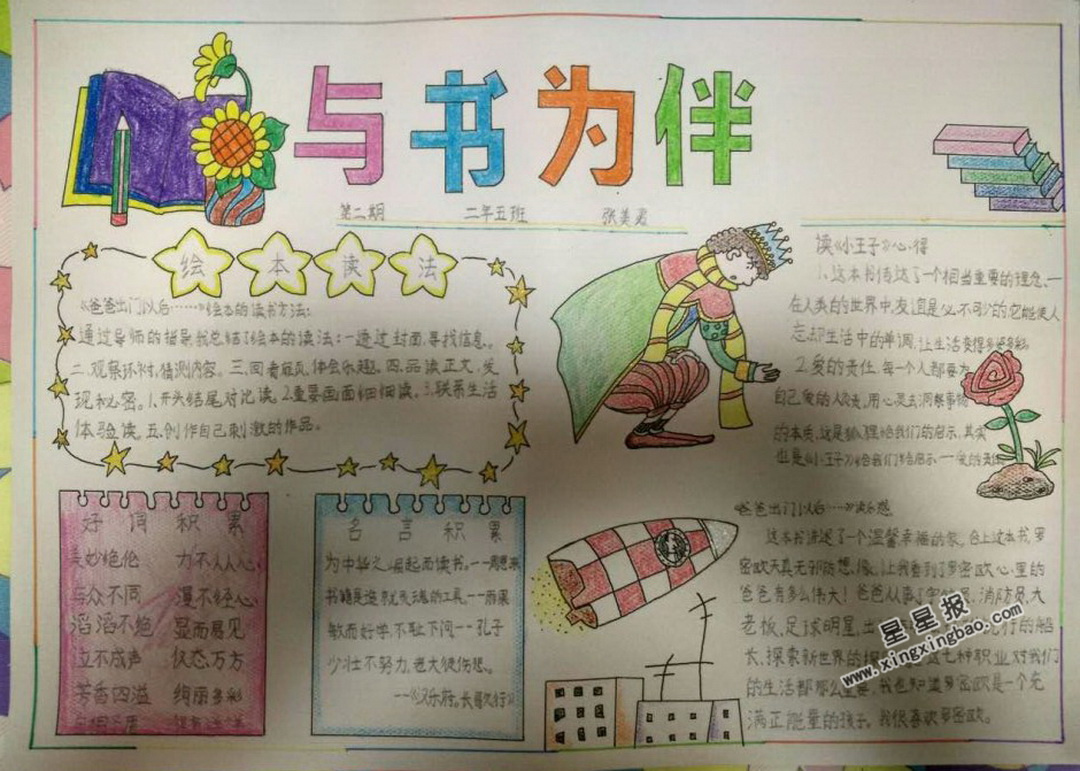 与书为伴
第二期 二年五班 张美
绘本读法
《爸爸出门以后……》绘本的读书方法:
通过导师的指导,我总结了绘本的读法:一通过封面,寻找信息。
二.观察环衬,猜测内容。三.回看扉页,体会乐趣.四.品读正文,发
现秘密。1.开头结尾对比读。2.重要画面细细读。3.联系生活
体验读。五.创作自己刺激的作品。
读《小王子》心得
1.这本书传达了一个相当重要的理念,一
在人类的世界中,友谊是必不可少的,它能使人
忘却生活中的单调,让生活变得多姿多彩。
2.爱的责任.每一个人都要为
自己爱的人负责,用心灵去洞察事物
的本质,这是狐狸给我们的启示,其实
也是《小王子》给我们的启示
好词积累
美妙绝伦 力不从心
与众不同 漫不经心
滔滔不绝 显而易见
泣不成声 仪态万方
芳香四溢 绚丽多彩
名言积累
为中华之崛起而读书。——周恩来
书籍是造就灵魂的工具。——雨果
敏而好学,不耻下问——孔子
少壮不努力,老大徒伤悲。
——《汉乐府。长歌行》
爸爸出门以后……》读后感
这本书讲述了一个温馨幸福的家。合上这本书,罗
密欧天真无邪的想像,让我看到了罗密欧心里的
爸爸有多么伟大!爸爸从 消防员,大
老板,足球明星, 行的船
长,探索新世界的 这七种职业对我们
的生活都那么重要。我也知道罗密欧是一个充
满正能量的孩子。我很喜欢罗密欧。
星星报
www.xingxingbao.com